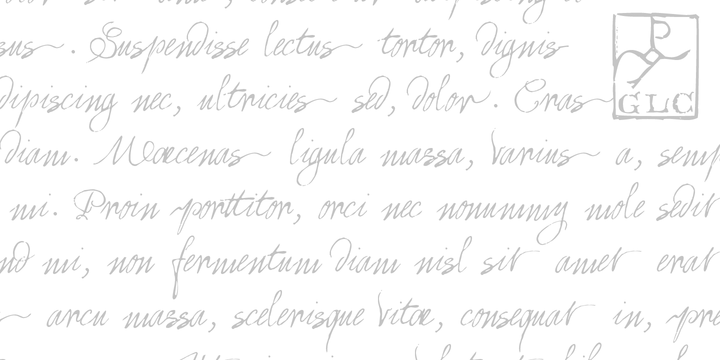 sus. Suspendisse lectus tortor, dignis
GLC
dipiscing nec, ultricies sed, dolor. Cras
diam. Maecenas ligula massa, varius a, semp
mi. Proin porttitor, orci nec nonummy mole sedit
mi, non fermentum diam nisl sit amet erat
arcu massa, scelerisque vitae, consequat in, pre